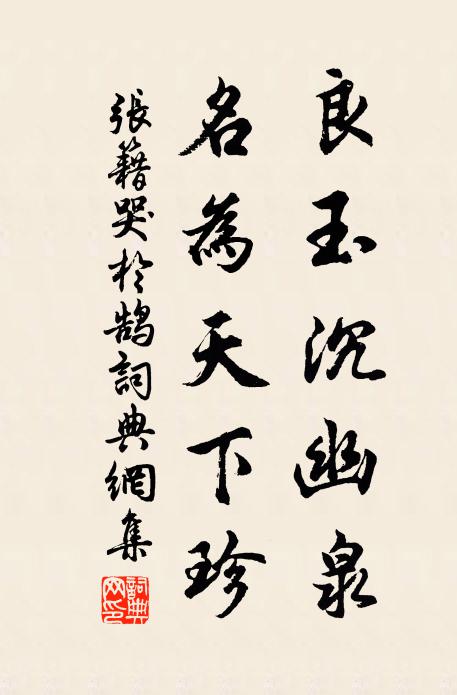 良玉沉幽泉
名為天下珍
張籍哭於鵠詞典網集
詞典網印